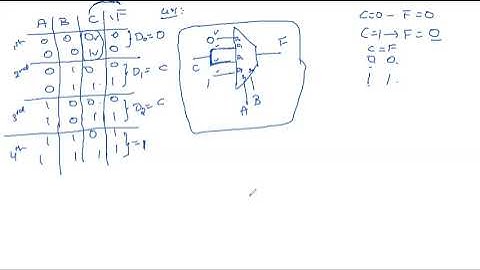 A B C F
1st 0 0 0 0 } D0 = 0
0 0 1 0
2nd 0 1 0 0 } D1 = C
0 1 1 1
3rd 1 0 0 0 } D2 = C
1 0 1 1
4th 1 1 0 1 } = 1
1 1 1 1
0
C
1
F
A B
C=0 - F=0
C=1 → F = 0
C=F
0 0.
1 1.